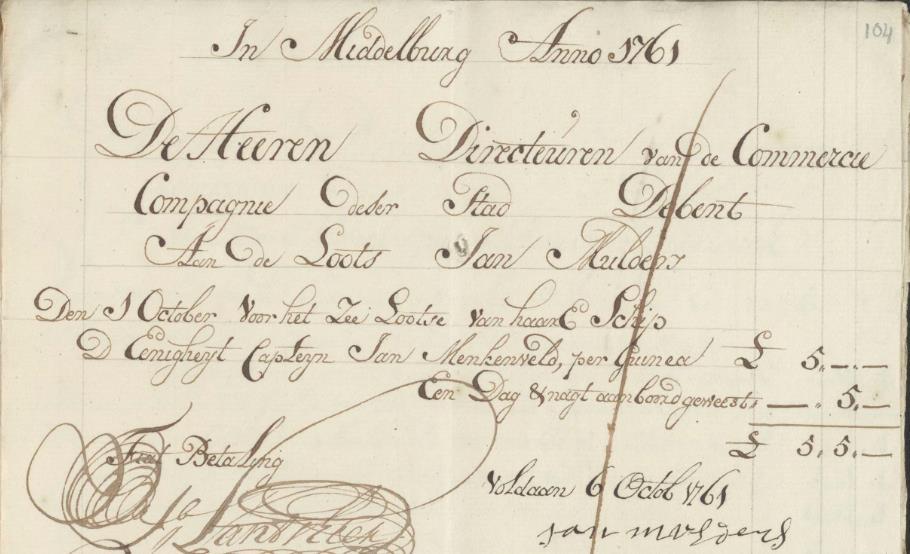 104
In Middelburg Anno 1761
De Heeren Directeuren van de Commercie
Compagnie deser Stad Debent
Aan de Loots Jan Mulders
Den 1 October voor het Zee Lootse van haar Ed Schip
D Eenigheyt Capteyn Jan Menkenveld, per Guinea £ 5.—.—
Een Dag & nagt aan bord geweest —. 5.—
£ 5.5.—
Fiat Betaling
voldaan 6 Octob 1761
jan mulders